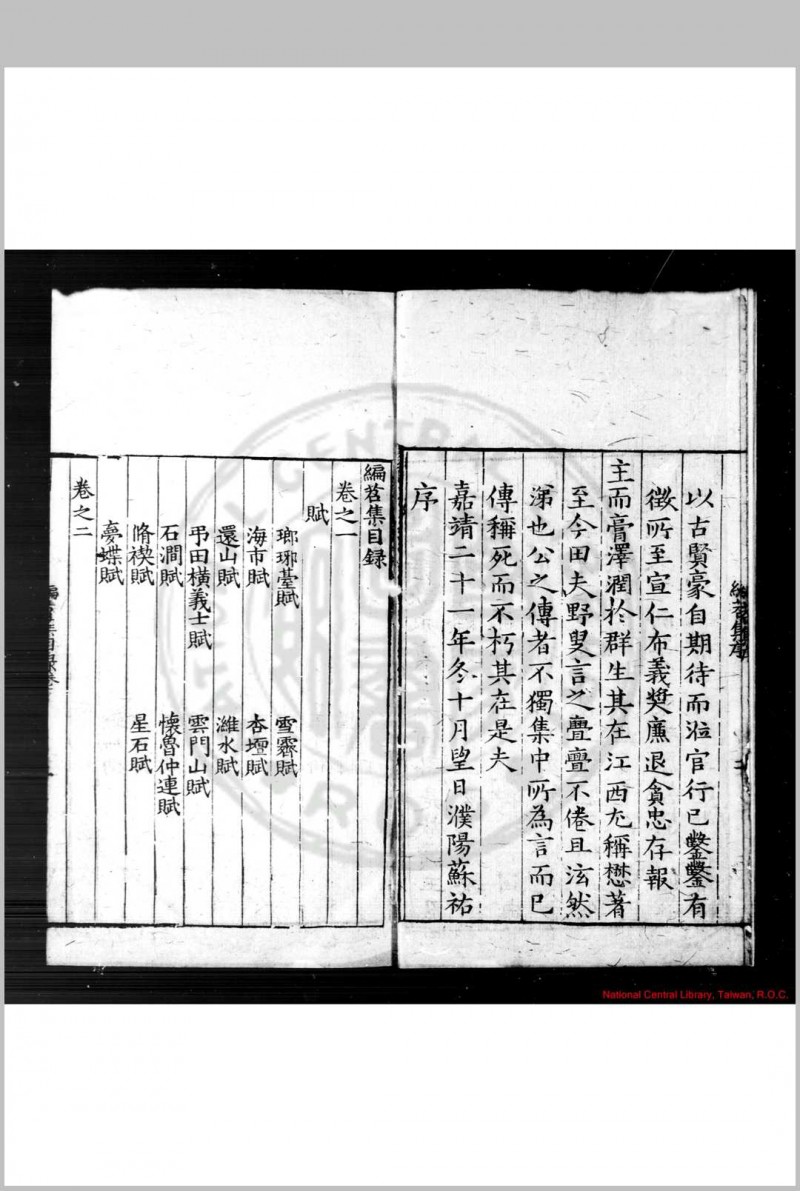 以古賢豪自期待而涖官行已鑿鑿有
徵所至宣仁布義奬廉退貪忠存報
主而膏澤潤於群生其在江西尤稱懋著
至今田夫野叟言之亹亹不倦且泫然
涕也公之傳者不獨集中所為言而已
傳稱死而不朽其在是夫
嘉靖二十一年冬十月望日濮陽蘇祐
序
編苕集目録
卷之一
賦
瑯琊臺賦 雪霽賦
海市賦 杏壇賦
還山賦 濰水賦
弔田橫義士賦 雲門山賦
石澗賦 懷魯仲連賦
脩禊賦 星石賦
夢蝶賦
卷之二
National Central Library, Taiwan, R.O.C.